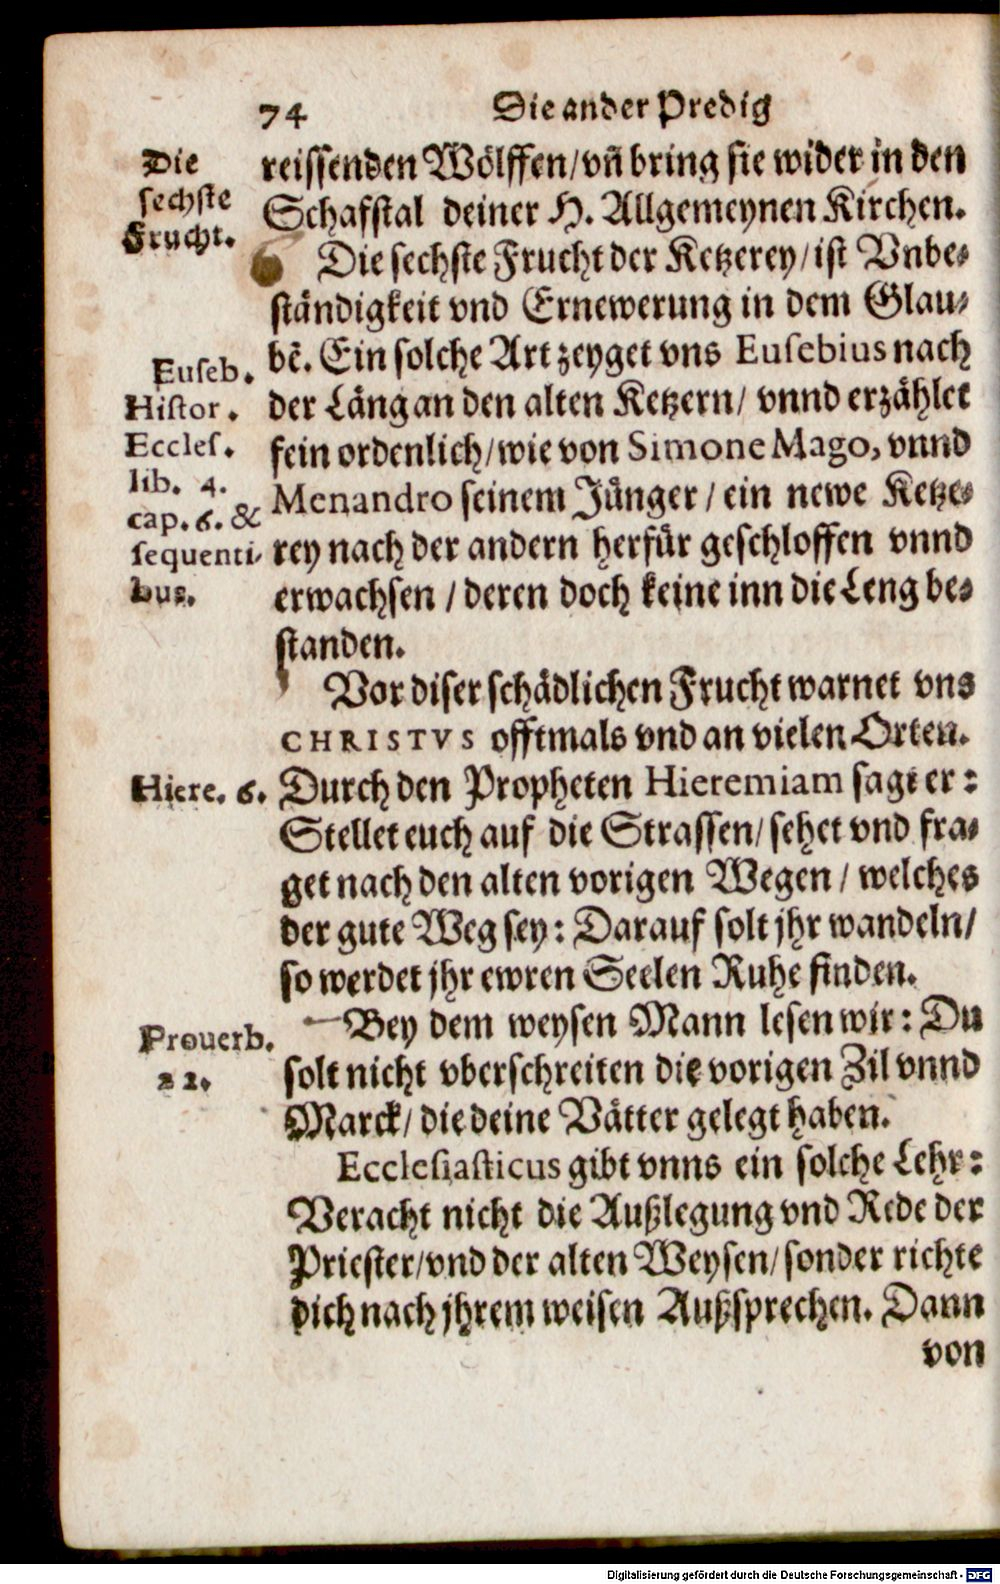 74 Die ander Predig
Die
sechste
Frucht.
reissenden Wölffen/ vñ bring sie wider in den
Schafstal deiner H. Allgemeynen Kirchen.
Die sechste Frucht der Ketzerey/ ist Vnbe-
ständigkeit vnd Ernewerung in dem Glau-
bẽ. Ein solche Art zeyget vns Eusebius nach
der Läng an den alten Ketzern/ vnnd erzählet
fein ordenlich/ wie von Simone Mago, vnnd
Menandro seinem Jünger/ ein newe Ketze-
rey nach der andern herfür geschloffen vnnd
erwachsen/ deren doch keine inn die Leng be-
standen.
Euseb.
Histor.
Eccles.
lib. 4.
cap. 6. &
sequenti-
bus.
Vor diser schädlichen Frucht warnet vns
CHRISTVS offtmals vnd an vielen Orten.
Durch den Propheten Hieremiam sagt er:
Stellet euch auf die Strassen/ sehet vnd fra-
get nach den alten vorigen Wegen/ welches
der gute Weg sey: Darauf solt jhr wandeln/
so werdet jhr ewren Seelen Ruhe finden.
Hiere. 6.
Bey dem weysen Mann lesen wir: Du
solt nicht vberschreiten die vorigen Zil vnnd
Marck/ die deine Vätter gelegt haben.
Prouerb.
22.
Ecclesiasticus gibt vnns ein solche Lehr:
Veracht nicht die Außlegung vnd Rede der
Priester/ vnd der alten Weysen/ sonder richte
dich nach jhrem weisen Außsprechen. Dann
von
Digitalisierung gefördert durch die Deutsche Forschungsgemeinschaft - DFG